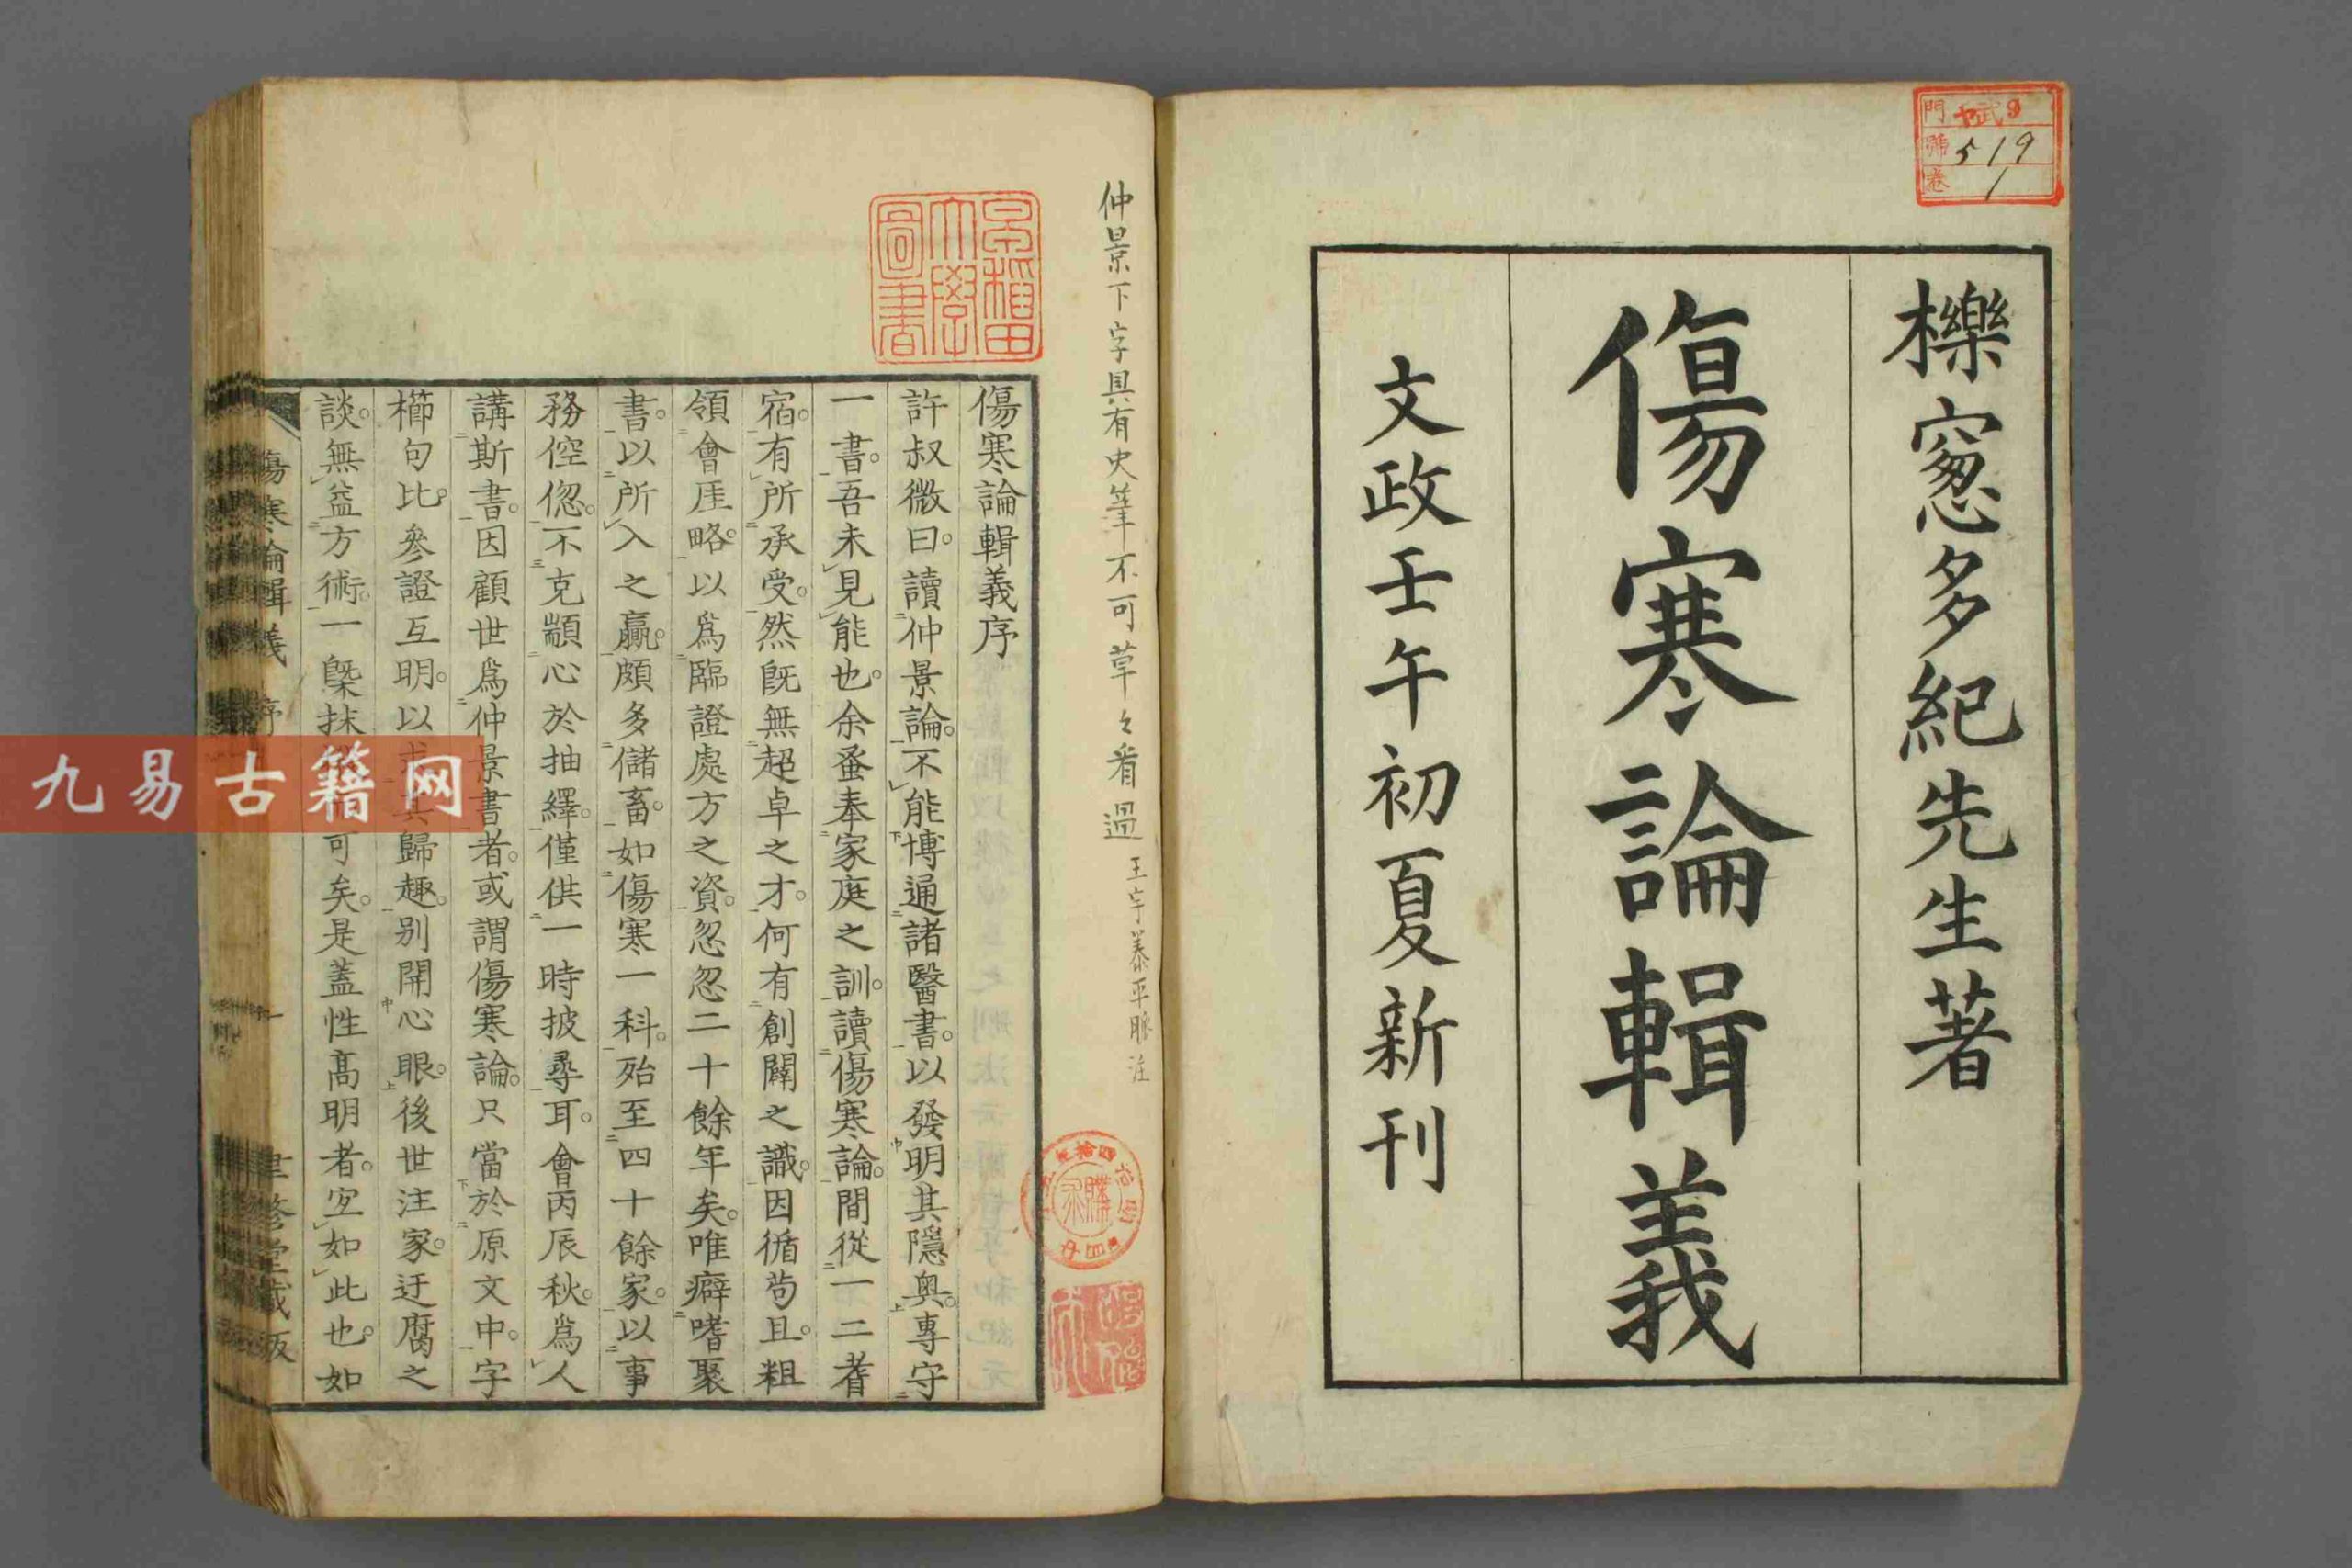 櫟窻多紀先生著
傷寒論輯義
文政壬午初夏新刊
門 9
號 519
卷 1
仲景下字具有史筆不可草々看過 王宇泰平脈注
早稲田大學圖書
傷寒論輯義序
許叔微曰。讀仲景論。不能博通諸醫書。以發明其隱奥。專守
一書。吾未見能也。余蚤奉家庭之訓。讀傷寒論。間從一二耆
宿。有所承受。然既無超卓之才。何有創闢之識。因循苟且。粗
領會厓略。以爲臨證處方之資。忽忽二十餘年矣。唯癖嗜聚
書。以所入之贏。頗多儲畜。如傷寒一科。殆至四十餘家。以事
務倥偬。不克顓心於抽繹。僅供一時披尋耳。會丙辰秋。爲人
講斯書。因顧世爲仲景書者。或謂傷寒論。只當於原文中。字
櫛句比。參證互明。以求其歸趣。別開心眼。後世注家。迂腐之
談。無益方術。一槩抹可矣。是蓋性高明者。宐如此也。如
傷寒論輯義 序 一
聿修堂藏版
九易古籍网